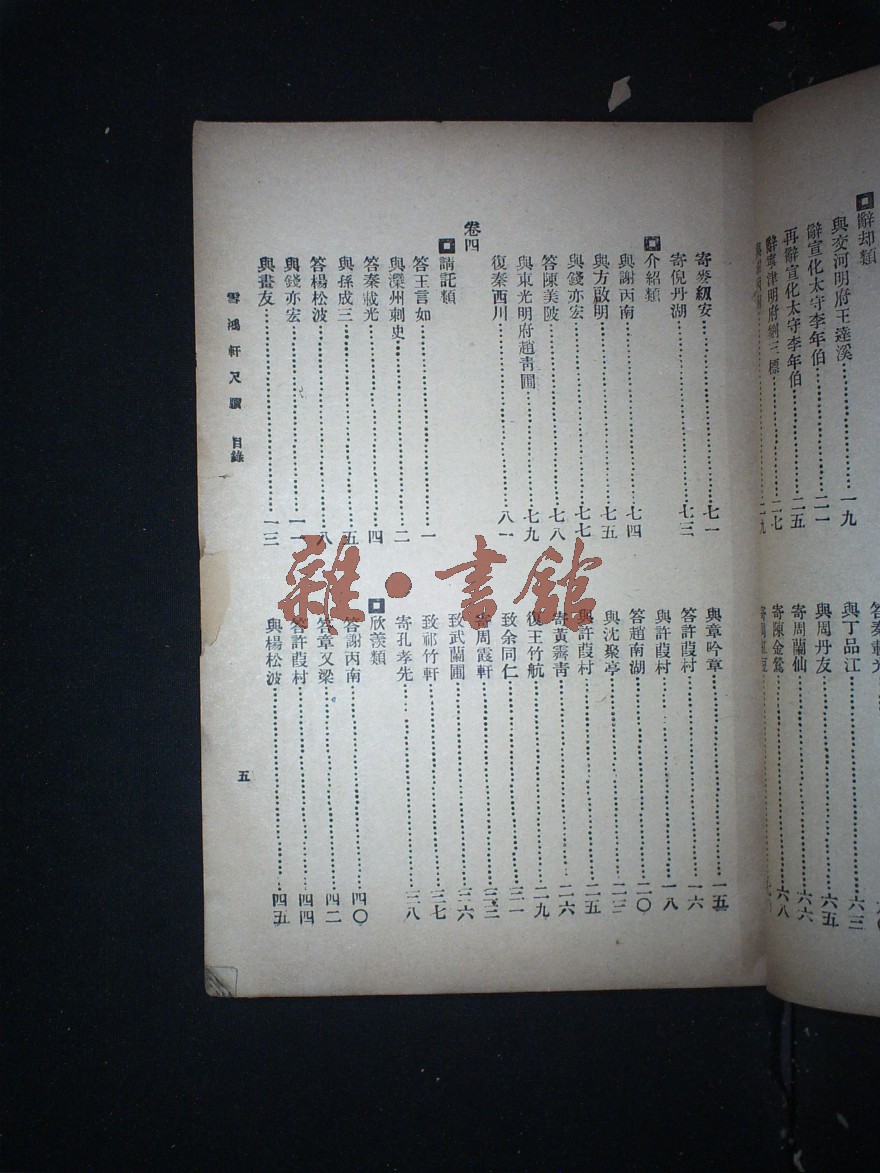 辭却類
與交河明府王達溪……一九
辭宣化太守李年伯……二一
再辭宣化太守李年伯……二五
辭寧津明府劉三標……二七
與丁品江……六三
與周丹友……六五
寄周蘭仙……六六
寄陳金鴬……六八
寄婺紉安……七一
寄倪丹湖……七三
介紹類
與謝丙南……七四
與方啟明……七五
與錢亦宏……七七
答陳美陂……七八
與東光明府趙青圃……七九
復秦西川……八一
卷四
請託類
答王言如……一
與灤州刺史……二
答秦載光……四
與孫成三……五
答楊松波……八
與錢亦宏……一一
與畫友……一三
與章吟章……一五
答許葭村……一六
與許葭村……一八
答趙南湖……二〇
與沈聚亭……二三
與許葭村……二五
寄黃霽青……二六
復王竹航……二九
致余同仁……三一
寄周霞軒……三三
致武蘭圃……三六
致祁竹軒……三七
寄孔孝先……三八
欣羨類
答謝丙南……四〇
答章又梁……四二
答許葭村……四四
與楊松波……四五
雪鴻軒尺牘 目錄
五
雜·書館